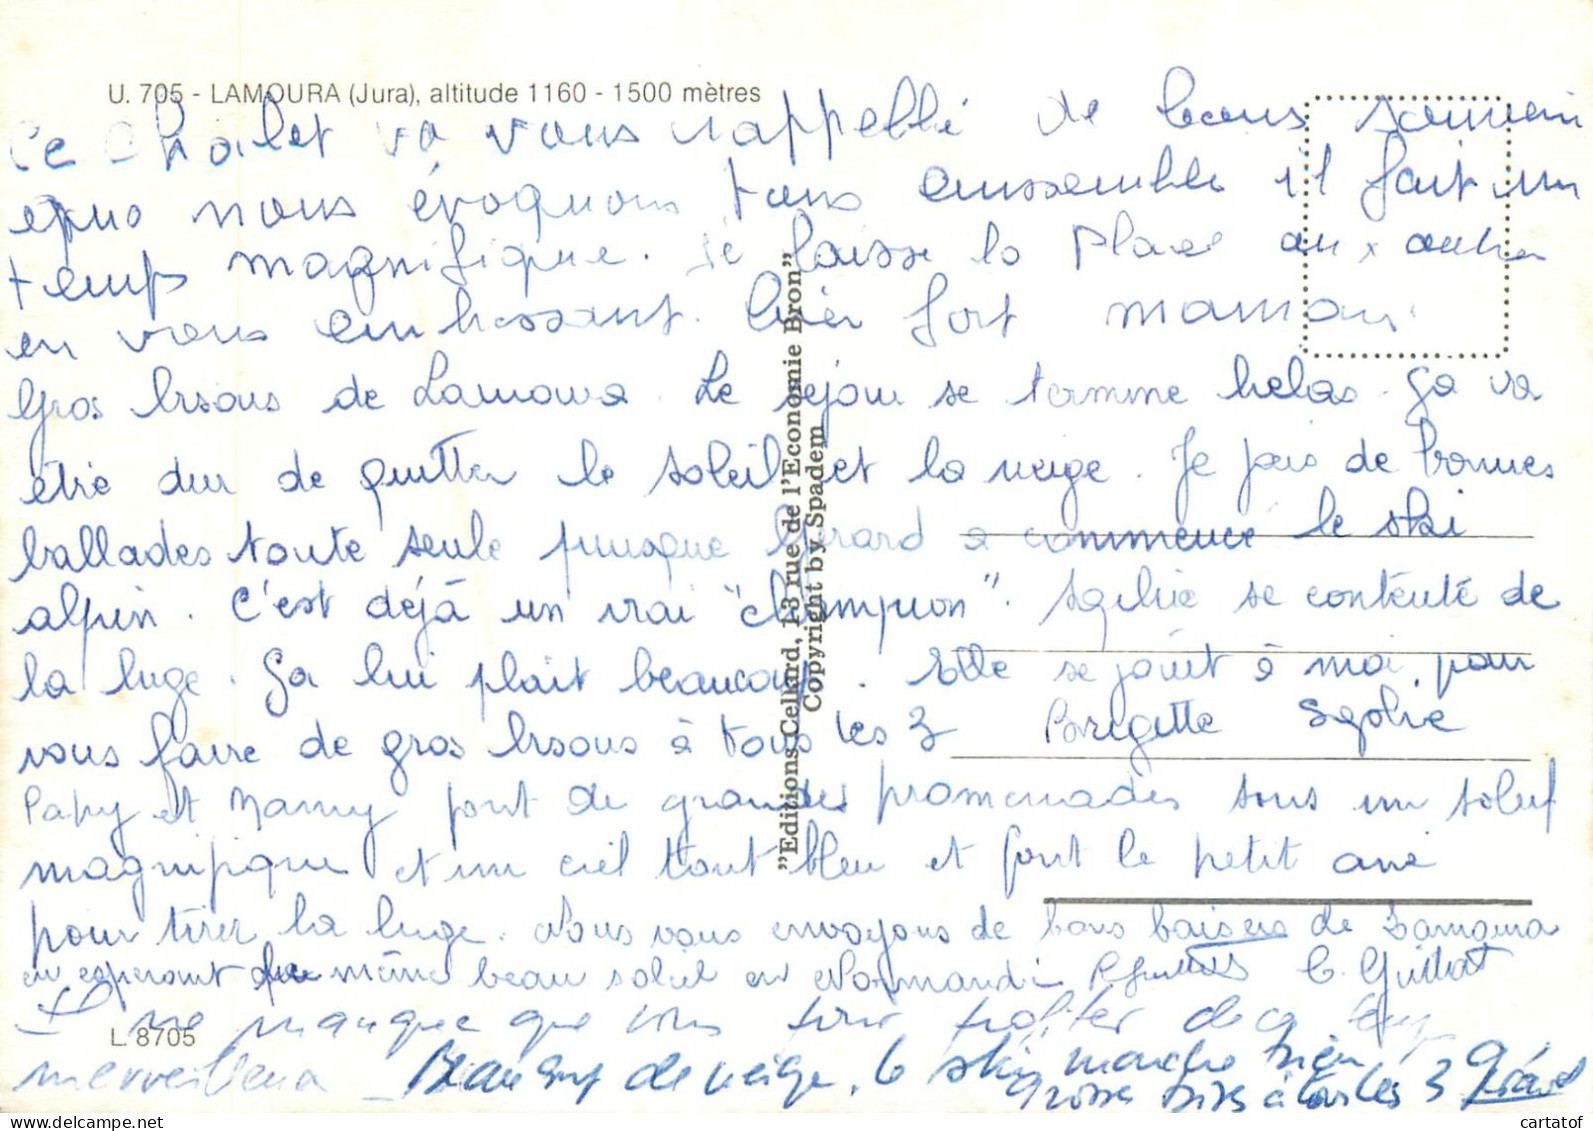 U. 705 - LAMOURA (Jura), altitude 1160 - 1500 mètres
Ce chalet va vous rappellé de bons souvenir
que nous évoquons tous enssemble il fait un
temps magnifique. Je laisse la place aux autres
en vous embrassant. bien fort maman.
Gros bisous de Lamoura. Le séjour se termine helas. Ça va
être dur de quitter le soleil et la neige. Je fais de bonnes
ballades toute seule puisque Gérard a commencé le ski
alpin. C'est déjà un vrai "champion". Sophie se contente de
la luge. Ça lui plait beaucoup. Elle se joint à moi pour
vous faire de gros bisous à tous les 3 Brigitte Sophie
Papy et Mamy font de grandes promenades sous un soleil
magnifique et un ciel tout bleu et font le petit ane
pour tirer la luge. Nous vous envoyons de bons baisers de Lamoura
en esperant le même beau soleil en Normandie
Il ne manque que vous pour profiter de ce temps
merveilleux
Beaucoup de neige, le ski marche bien
Grosses bises à tous les 3 Gérard
L 8705
"Editions Cellard, 13 rue de l'Economie Bron"
Copyright by Spadem
cartatof